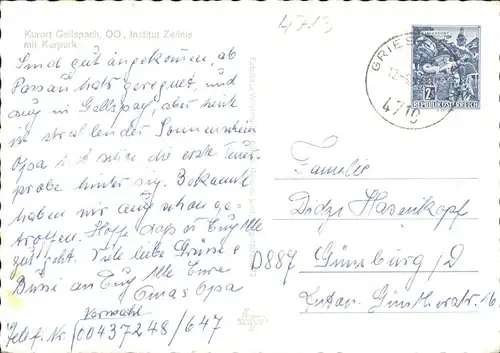 4713
Kurort Gallspach, OÖ., Institut Zeileis
mit Kurpark
Sind gut angekommen, ab
Passau hats geregnet, und
auch in Gallspach, aber heute
ist strahlender Sonnenschein
Opa hat seine die erste Feuer-
probe hinter sich. Bekannte
haben wir auch schon ge-
troffen. Hoffe dass es Euch Alle
gut geht. Viele liebe Grüsse u
Bussi an Euch Alle Eure
Omas Opa
Vorwahl
Telef. Nr. 00437248/647
GRIES
4710
2S
REPUBLIK ÖSTERREICH
Familie
Hasenkopf
D887 Günzburg/D
Güntherstr. 16